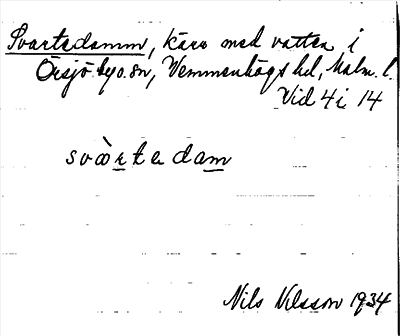 Svartedamm, kärr med vatten i
Örsjö by o. sn, Vemmenhögs hd, Malm. l.
Vid 4 i 14
svàrtedam
Nils Nilsson 1934